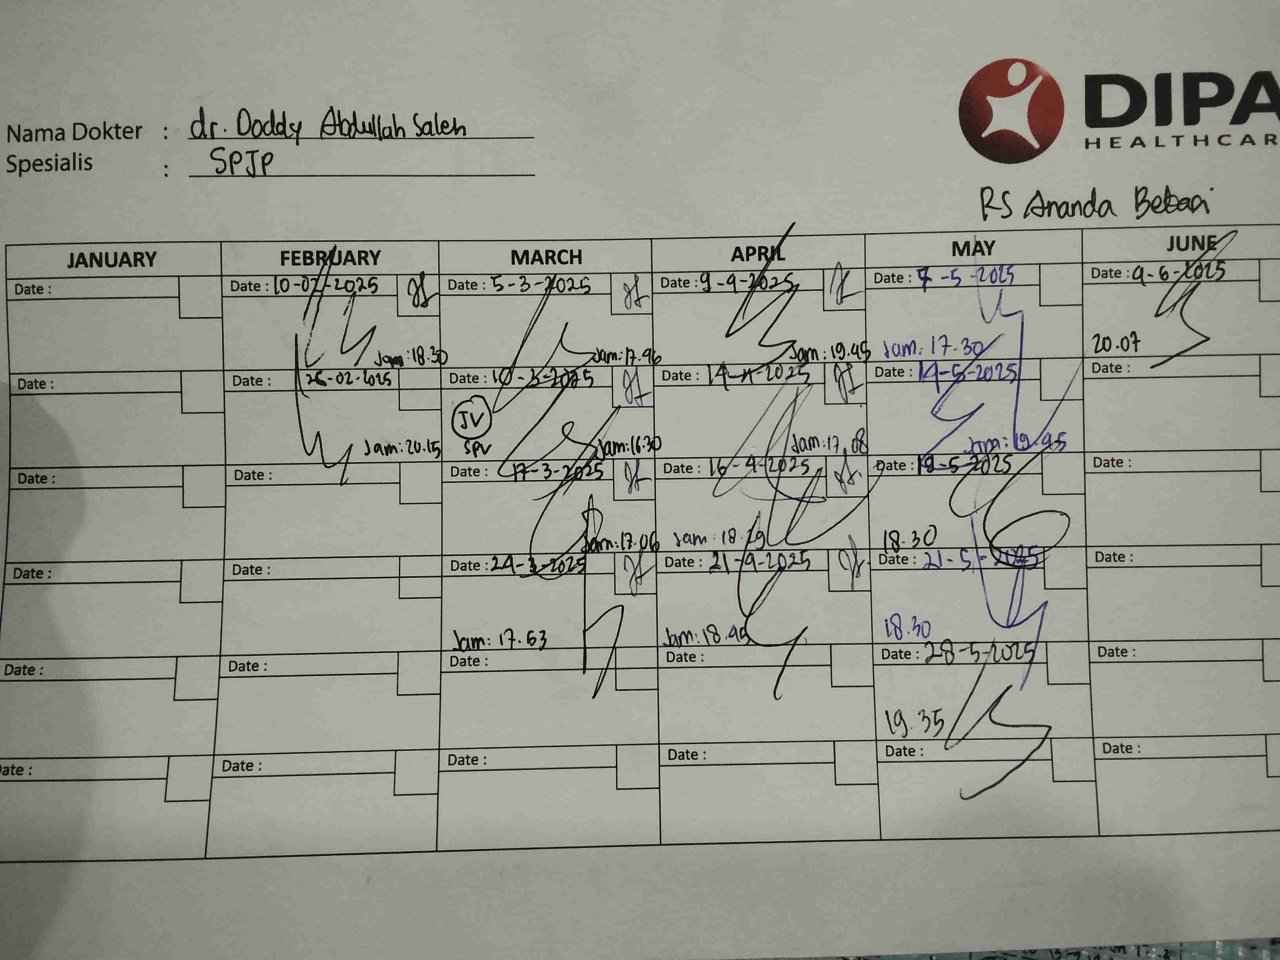 Nama Dokter : dr. Doddy Abdullah Saleh
Spesialis : SPJP
DIPA
HEALTHCAR
RS Ananda Bekasi
JANUARY FEBRUARY MARCH APRIL MAY JUNE
Date : Date : 10-02-2025 Date : 5-3-2025 Date : 9-4-2025 Date : 7-5-2025 Date : 4-6-2025
Jam: 18.30 Jam: 17.46 Jam: 19.45 Jam: 17.30 20.07
Date : Date : 26-02-2025 Date : 10-3-2025 Date : 14-4-2025 Date : 14-5-2025 Date :
JV
SPV
Jam: 20.15 Jam: 16.30 Jam: 17.08 Jam: 19.45
Date : Date : Date : 17-3-2025 Date : 16-4-2025 Date : 19-5-2025 Date :
Jam: 17.06 Jam: 18.29 18.30
Date : Date : Date : 24-3-2025 Date : 21-4-2025 Date : 21-5-2025 Date :
Jam: 17.53 Jam: 18.45 18.30
Date : Date : Date : Date : Date : 28-5-2025 Date :
19.35
Date : Date : Date : Date : Date : Date :